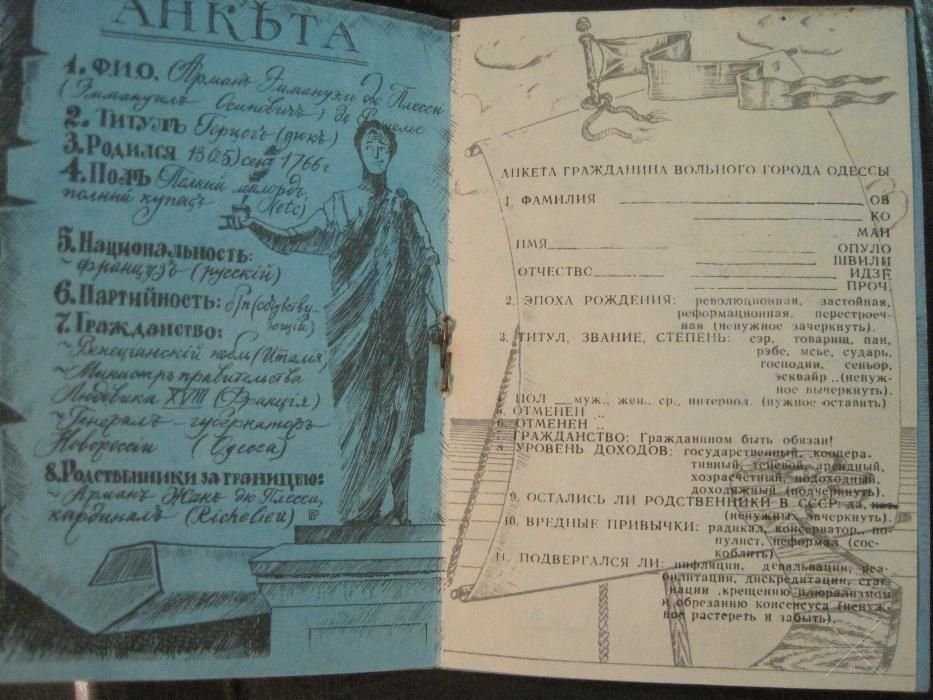 АНКѢТА
1. ФИО. Арманъ Эммануэль дю Плесси
(Эммануилъ Осиповичъ) де Ришелье
2. Титулъ Герцогъ (дюкъ)
3. Родился 13(25) сент 1766 г
4. Полъ Полный
полный купецъ
5. Национальность:
~ французъ (русскій)
6. Партийность: б/п (сочувству-
ющій)
7. Гражданство:
~ Венецианскій нобль (Италия)
~ Министръ правительства
Людовика XVIII (Франція)
~ Генералъ-губернаторъ
Новороссіи (Одесса)
8. Родственники за границею:
~ Арманъ Жанъ дю Плесси,
кардиналъ (Richelieu)
АНКЕТА ГРАЖДАНИНА ВОЛЬНОГО ГОРОДА ОДЕССЫ
1. ФАМИЛИЯ ОВ
КО
МАН
ИМЯ ОПУЛО
ШВИЛИ
ОТЧЕСТВО ИДЗЕ
ПРОЧ.
2. ЭПОХА РОЖДЕНИЯ: революционная, застойная,
реформационная, перестроеч-
ная (ненужное зачеркнуть).
3. ТИТУЛ, ЗВАНИЕ, СТЕПЕНЬ: сэр, товарищ, пан,
рэбе, мсье, сударь,
господин, сеньор,
эсквайр ..(ненуж-
ное вычеркнуть).
ПОЛ муж., жен., ср., интерпол. (нужное оставить)
ОТМЕНЕН ..
6. ОТМЕНЕН ..
ГРАЖДАНСТВО: Гражданином быть обязан!
8. УРОВЕНЬ ДОХОДОВ: государственный, коопера-
тивный, теневой, арендный,
хозрасчетный, подоходный,
доходяжный (подчеркнуть).
9. ОСТАЛИСЬ ЛИ РОДСТВЕННИКИ В СССР: да, нет
(ненужных зачеркнуть).
10. ВРЕДНЫЕ ПРИВЫЧКИ: радикал, консерватор, по-
пулист, неформал (сос-
коблить)
11. ПОДВЕРГАЛСЯ ЛИ: инфляции, девальвации, реа-
билитации, дискредитации, стаг-
нации, крещению плюрализмом
и обрезанию консенсуса (ненуж-
ное растереть и забыть).